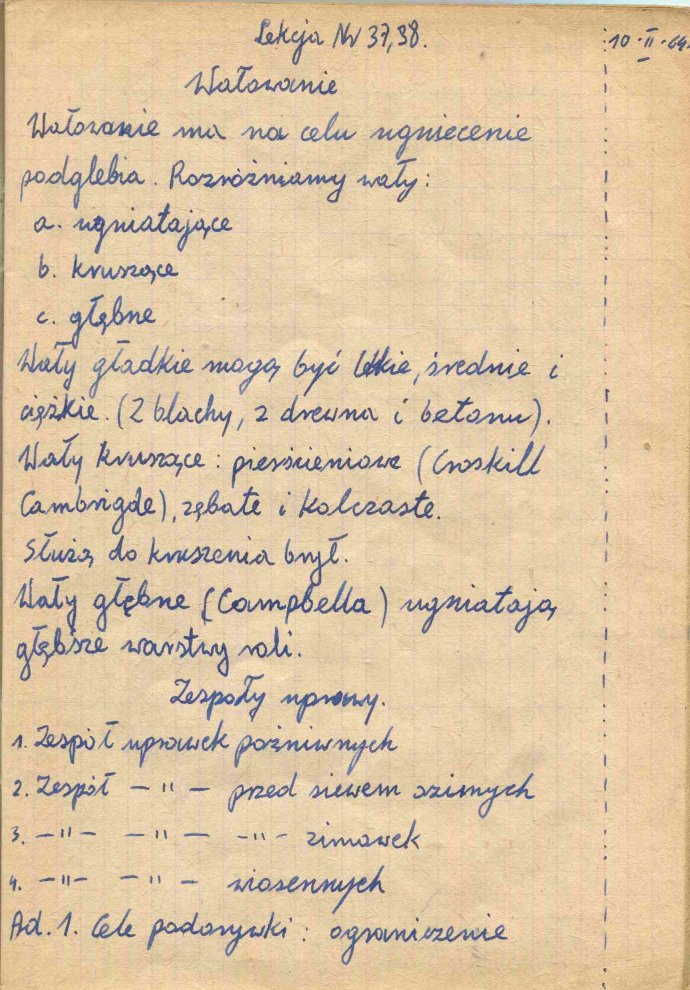 Lekcja Nr 37,38.
10·II·64
Wałowanie
Wałowanie ma na celu ugniecenie
podglebia. Rozróżniamy wały:
a. ugniatające
b. kruszące
c. głębne
Wały gładkie mogą być lekkie, średnie i
ciężkie. (Z blachy, z drewna i betonu).
Wały kruszące: pierścieniowe (Croskill
Cambrigde), zębate i kolczaste.
Służą do kruszenia brył.
Wały głębne (Campbella) ugniatają
głębsze warstwy roli.
Zespoły uprawy.
1. Zespół uprawek pożniwnych
2. Zespół — " — przed siewem ozimych
3. — " — — " — — " — zimowek
4. — " — — " — wiosennych
Ad. 1. Cele podorywki: ograniczenie